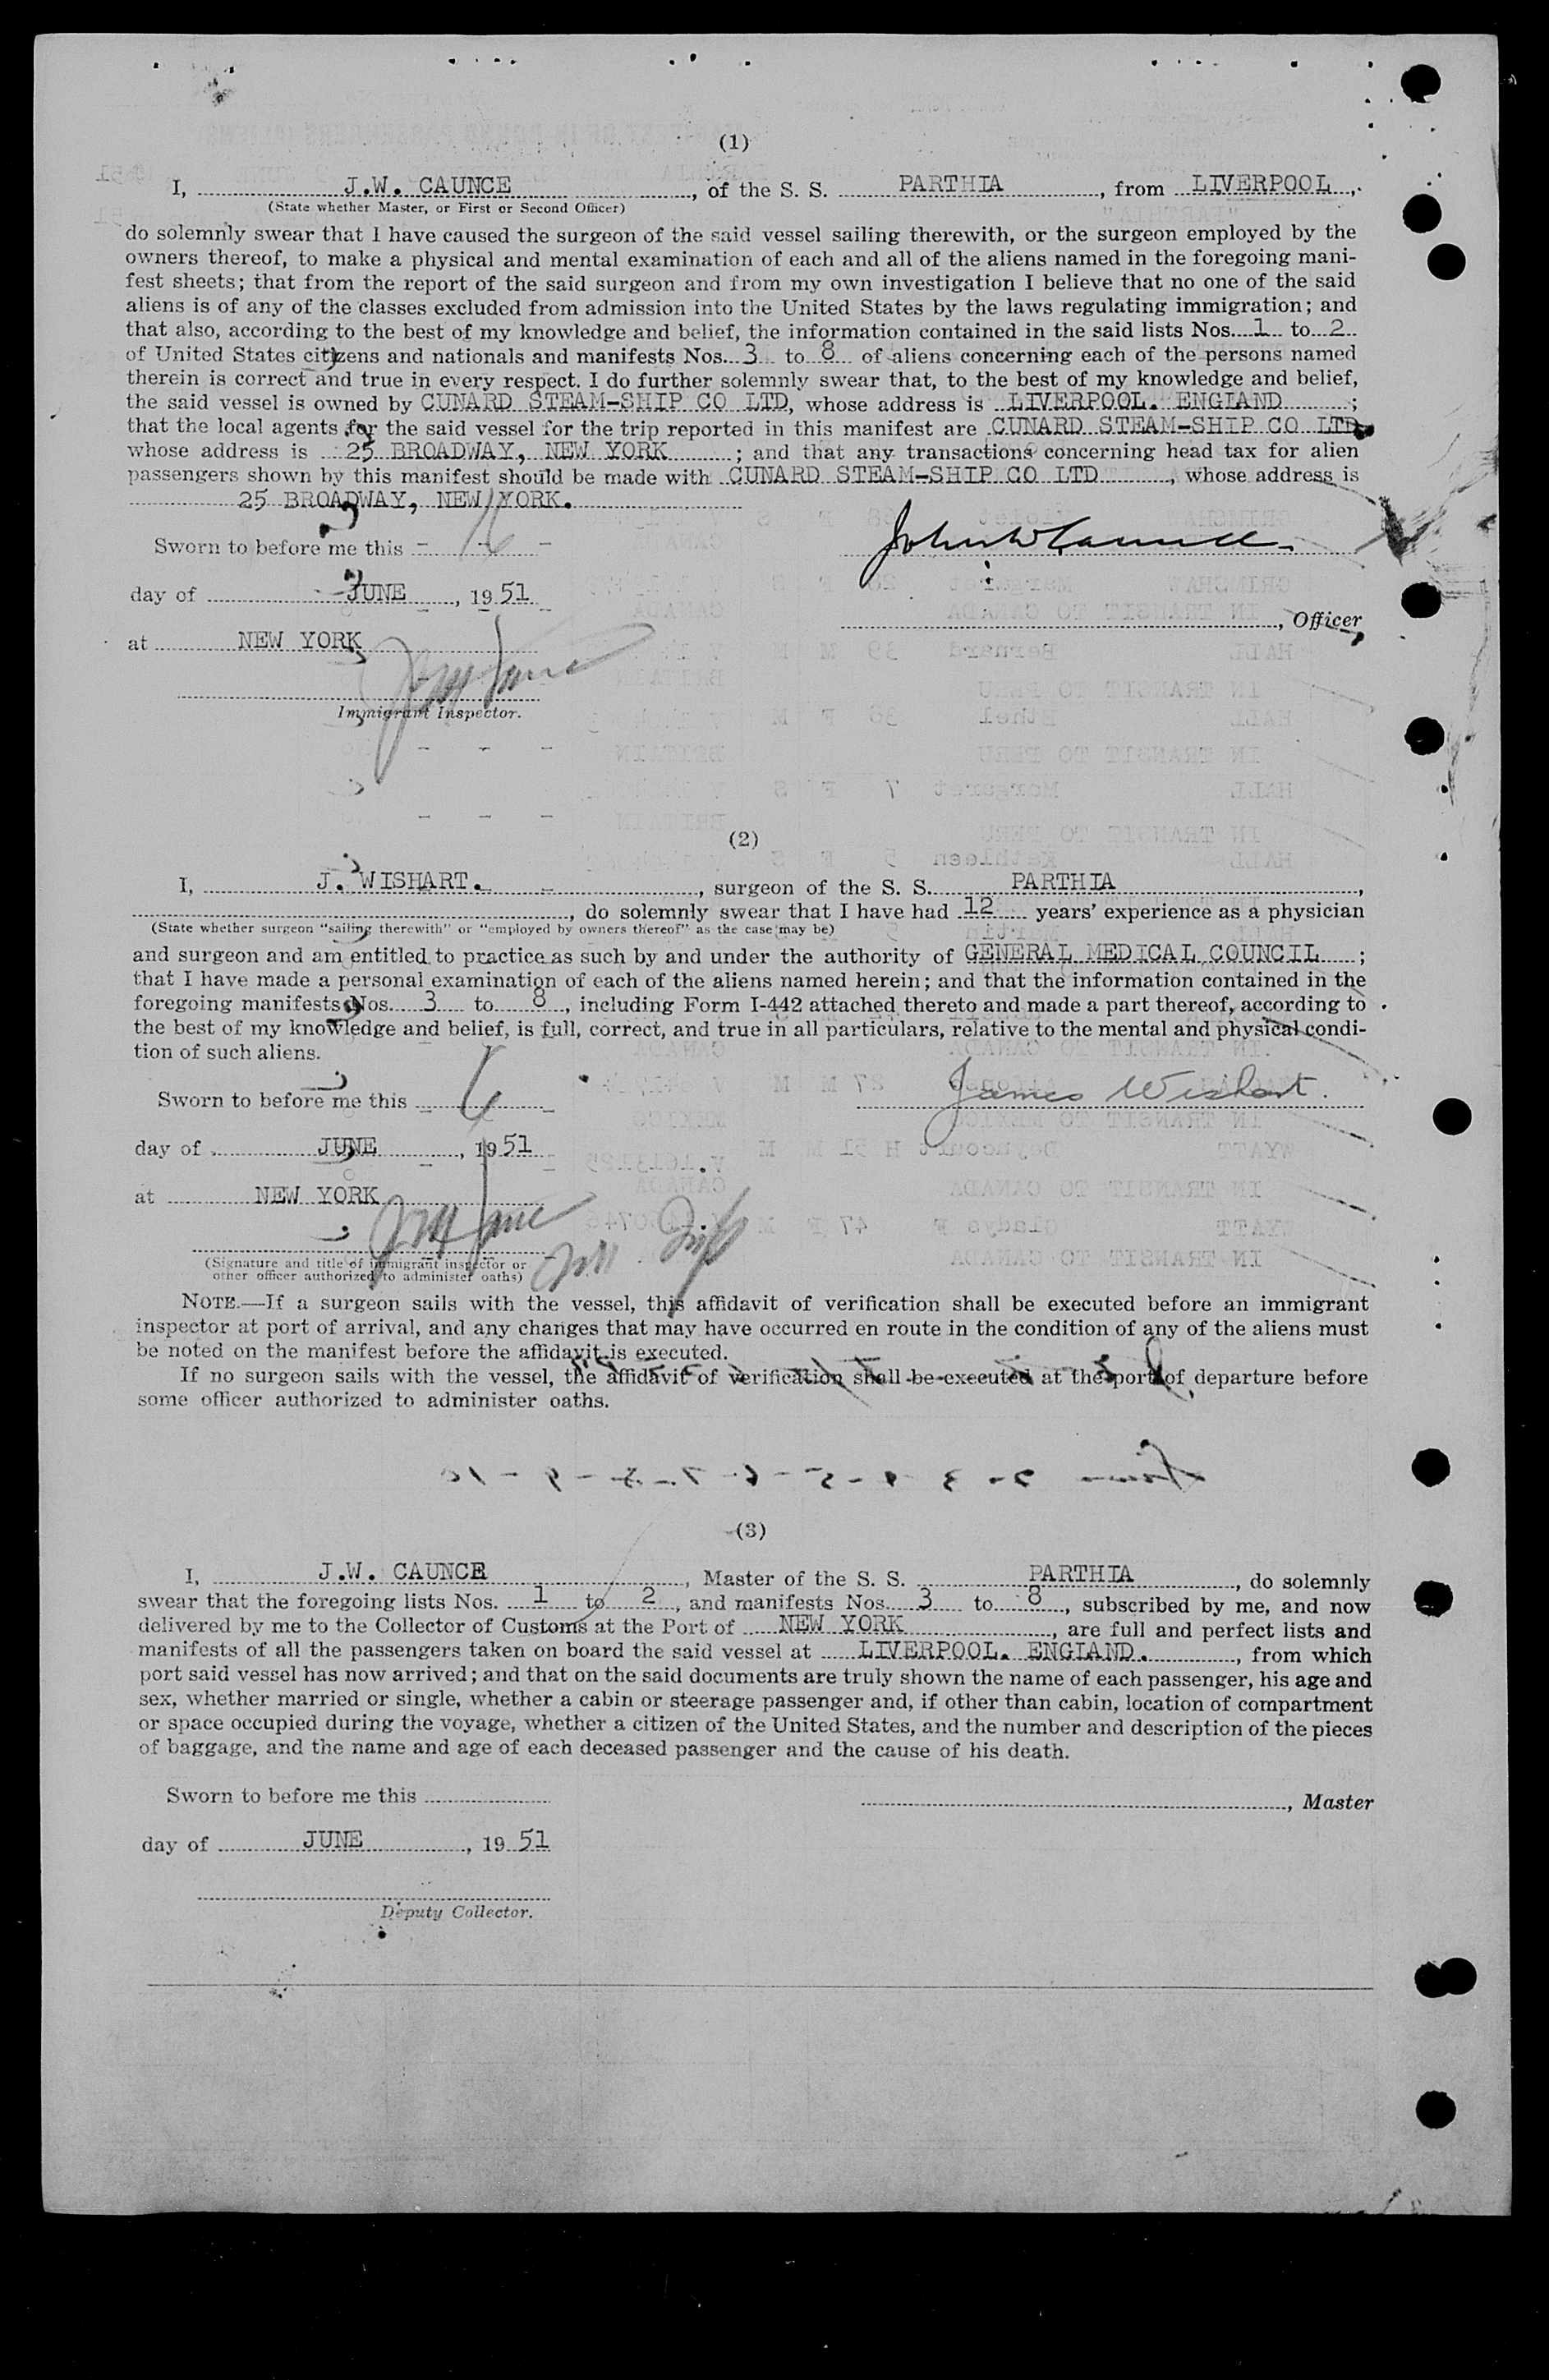 (1)
I, J.W. CAUNCE, of the S. S. PARTHIA, from LIVERPOOL,
(State whether Master, or First or Second Officer)
do solemnly swear that I have caused the surgeon of the said vessel sailing therewith, or the surgeon employed by the
owners thereof, to make a physical and mental examination of each and all of the aliens named in the foregoing mani-
fest sheets; that from the report of the said surgeon and from my own investigation I believe that no one of the said
aliens is of any of the classes excluded from admission into the United States by the laws regulating immigration; and
that also, according to the best of my knowledge and belief, the information contained in the said lists Nos. 1 to 2
of United States citizens and nationals and manifests Nos. 3 to 8 of aliens concerning each of the persons named
therein is correct and true in every respect. I do further solemnly swear that, to the best of my knowledge and belief,
the said vessel is owned by CUNARD STEAM-SHIP CO LTD, whose address is LIVERPOOL. ENGLAND ;
that the local agents for the said vessel for the trip reported in this manifest are CUNARD STEAM-SHIP CO LTD
whose address is 25 BROADWAY, NEW YORK ; and that any transactions concerning head tax for alien
passengers shown by this manifest should be made with CUNARD STEAM-SHIP CO LTD , whose address is
25 BROADWAY, NEW YORK.
Sworn to before me this 16 John W Caunce.
day of JUNE , 19 51
, Officer
at NEW YORK
Immigrant Inspector.
(2)
I, J. WISHART. , surgeon of the S. S. PARTHIA ,
, do solemnly swear that I have had 12 years' experience as a physician
(State whether surgeon "sailing therewith" or "employed by owners thereof" as the case may be)
and surgeon and am entitled to practice as such by and under the authority of GENERAL MEDICAL COUNCIL ;
that I have made a personal examination of each of the aliens named herein; and that the information contained in the
foregoing manifests Nos. 3 to 8 , including Form I-442 attached thereto and made a part thereof, according to
the best of my knowledge and belief, is full, correct, and true in all particulars, relative to the mental and physical condi-
tion of such aliens.
Sworn to before me this James Wishart.
day of JUNE , 19 51
at NEW YORK
(Signature and title of immigrant inspector or
other officer authorized to administer oaths)
NOTE.—If a surgeon sails with the vessel, this affidavit of verification shall be executed before an immigrant
inspector at port of arrival, and any changes that may have occurred en route in the condition of any of the aliens must
be noted on the manifest before the affidavit is executed.
If no surgeon sails with the vessel, the affidavit of verification shall be executed at the port of departure before
some officer authorized to administer oaths.
(3)
I, J.W. CAUNCE , Master of the S. S. PARTHIA , do solemnly
swear that the foregoing lists Nos. 1 to 2 , and manifests Nos. 3 to 8 , subscribed by me, and now
delivered by me to the Collector of Customs at the Port of NEW YORK , are full and perfect lists and
manifests of all the passengers taken on board the said vessel at LIVERPOOL. ENGLAND. , from which
port said vessel has now arrived; and that on the said documents are truly shown the name of each passenger, his age and
sex, whether married or single, whether a cabin or steerage passenger and, if other than cabin, location of compartment
or space occupied during the voyage, whether a citizen of the United States, and the number and description of the pieces
of baggage, and the name and age of each deceased passenger and the cause of his death.
Sworn to before me this , Master
day of JUNE , 19 51
Deputy Collector.